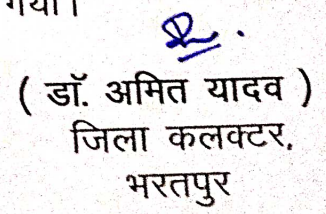 गया।
( डॉ. अमित यादव )
जिला कलक्टर,
भरतपुर